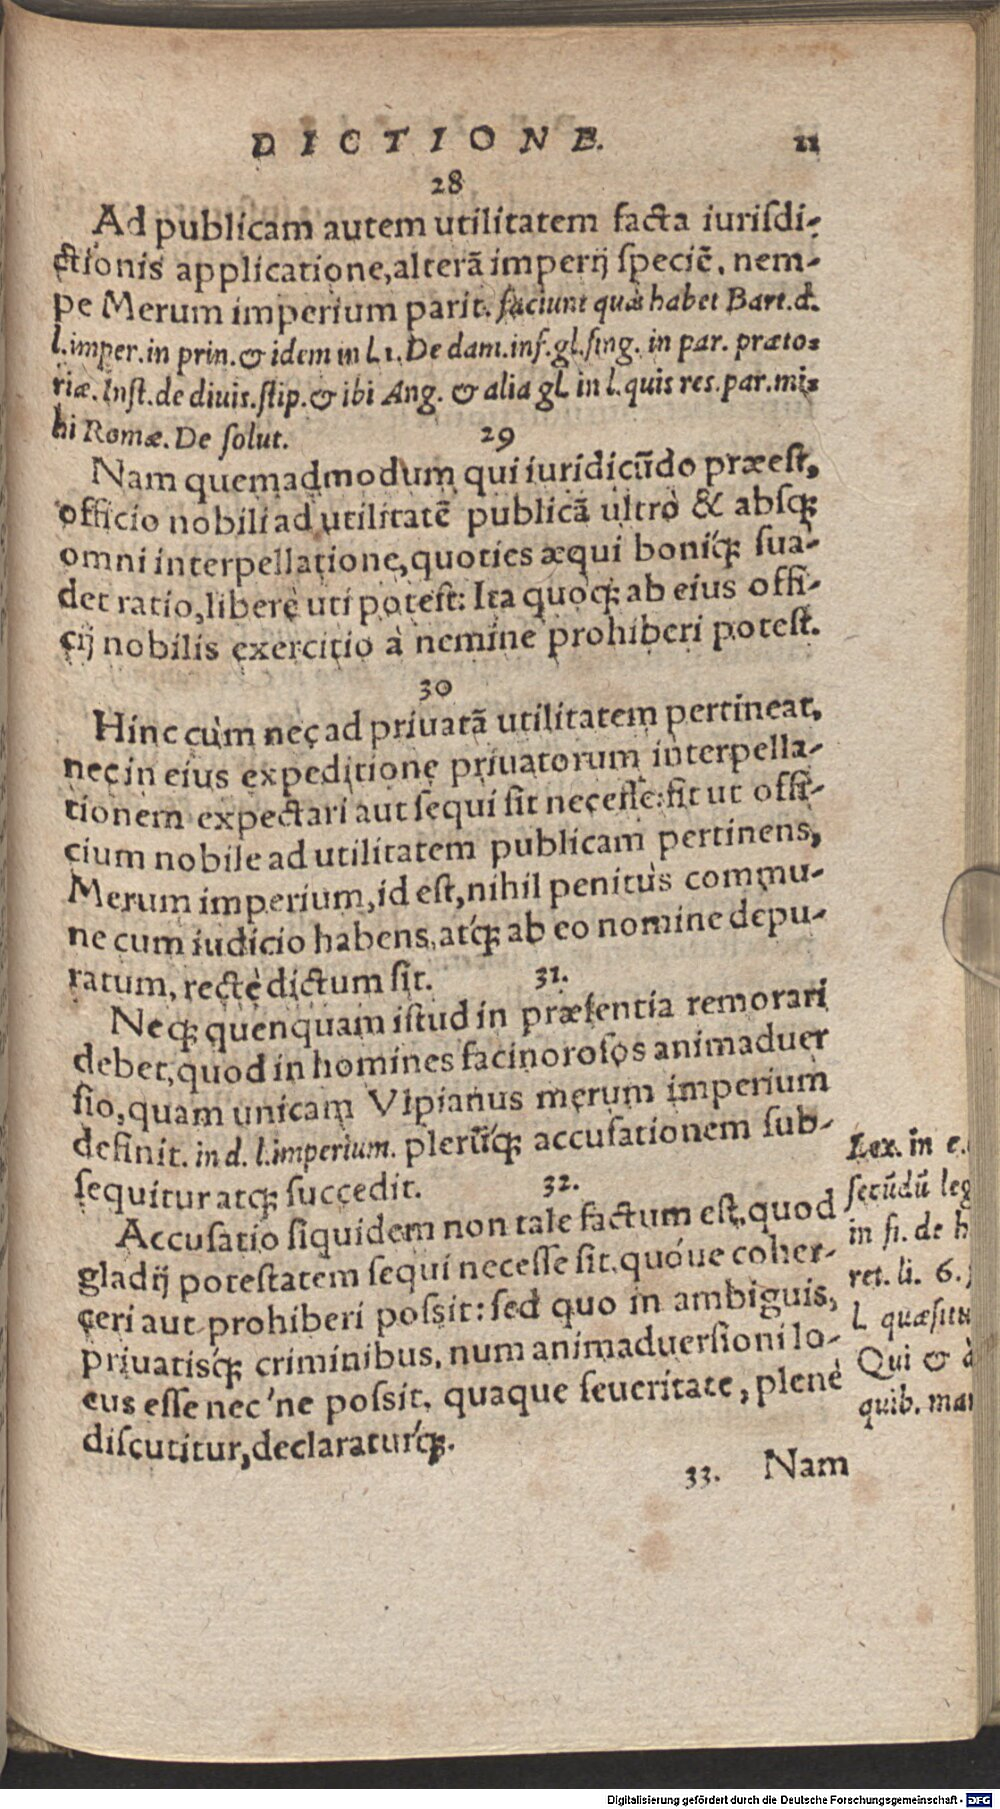 DICTIONE. 11
28
Ad publicam autem utilitatem facta iurisdi-
ctionis applicatione, alterã imperij speciẽ, nem-
pe Merum imperium parit. faciunt quæ habet Bart. d.
l. imper. in prin. & idem in l. 1. De dam. inf. gl. sing. in par. præto-
riæ. Inst. de diuis. stip. & ibi Ang. & alia gl. in l. quis res. par. mi-
hi Romæ. De solut. 29
Nam quemadmodum qui iuridicũdo præest,
officio nobili ad utilitatẽ publicã ultrò & absq;
omni interpellatione, quoties æqui boniq́; sua-
det ratio, liberè uti potest: Ita quoq; ab eius offi-
cij nobilis exercitio à nemine prohiberi potest.
30
Hinc cùm nec ad priuatã utilitatem pertineat,
nec in eius expeditione priuatorum interpella-
tionem expectari aut sequi sit necesse: fit ut offi-
cium nobile ad utilitatem publicam pertinens,
Merum imperium, id est, nihil penitùs commu-
ne cum iudicio habens, atq́; ab eo nomine depu-
ratum, rectè dictum sit. 31.
Neq; quenquam istud in præsentia remorari
debet, quod in homines facinorosos animaduer
sio, quam unicam Vlpianus merum imperium
definit. in d. l. imperium. plerũq́; accusationem sub-
sequitur atq; succedit. 32.
Accusatio siquidem non tale factum est, quod
gladij potestatem sequi necesse sit, quóue coher-
ceri aut prohiberi possit: sed quo in ambiguis,
priuatisq́; criminibus, num animaduersioni lo-
cus esse nec'ne possit, quaque seueritate, plenè
discutitur, declaraturq́;.
33. Nam
Lex. in e.
secũdũ leg
in fi. de h
ret. li. 6.
l. quæsitu
Qui & à
quib. man
Digitalisierung gefördert durch die Deutsche Forschungsgemeinschaft - DFG